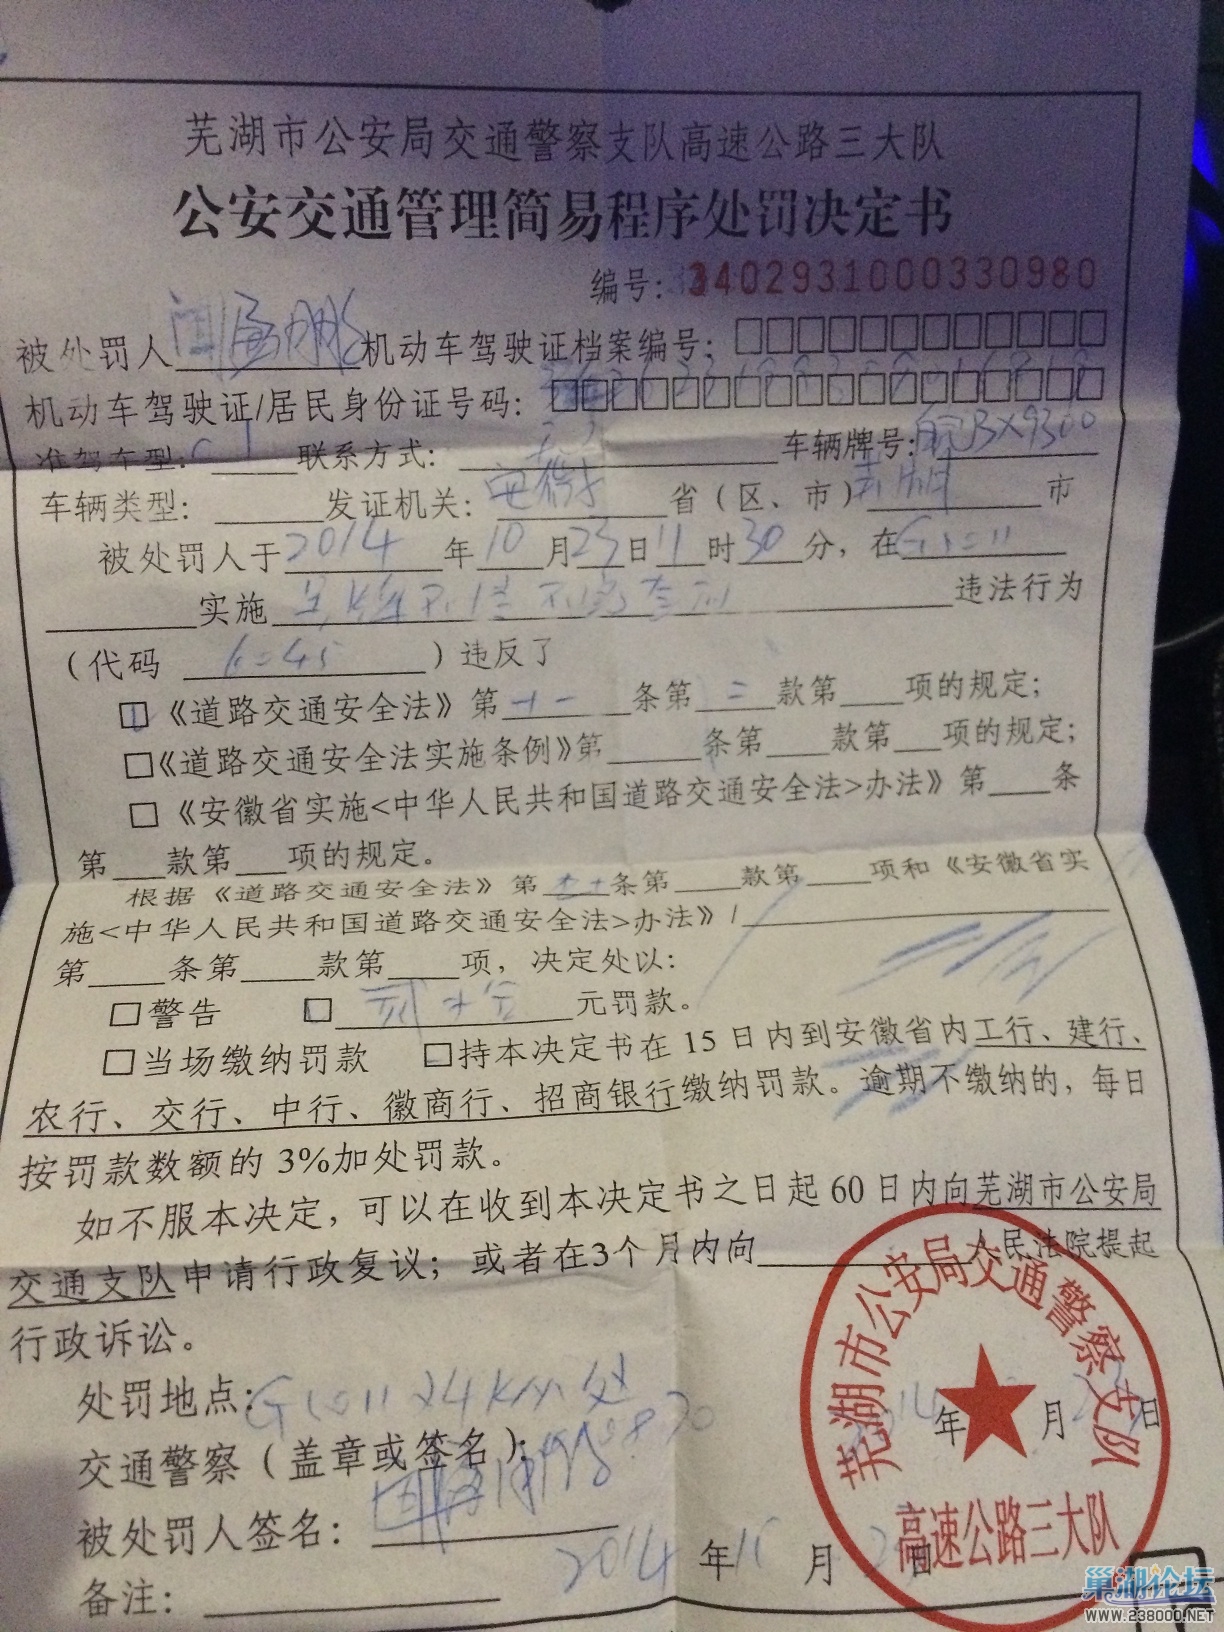 芜湖市公安局交通警察支队高速公路三大队
公安交通管理简易程序处罚决定书
编号: 3402931000330980
被处罚人 机动车驾驶证档案编号: □□□□□□□□□□□□
机动车驾驶证/居民身份证号码: □□□□□□□□□□□□□□□□□□
准驾车型: C1 联系方式: 车辆牌号: 皖BX9300
车辆类型: 发证机关: 安徽 省(区、市) 芜湖 市
被处罚人于 2014 年 10 月 23 日 11 时 30 分, 在
实施 违法行为
(代码 ) 违反了
□《道路交通安全法》第 十一 条第 二 款第 项的规定;
□《道路交通安全法实施条例》第 条第 款第 项的规定;
□《安徽省实施<中华人民共和国道路交通安全法>办法》第 条
第 款第 项的规定。
根据《道路交通安全法》第 九十 条第 款第 项和《安徽省实
施<中华人民共和国道路交通安全法>办法》/
第 条第 款第 项, 决定处以:
□警告 □ 贰十 元罚款。
□当场缴纳罚款 □持本决定书在15日内到安徽省内工行、建行、
农行、交行、中行、徽商行、招商银行缴纳罚款。逾期不缴纳的, 每日
按罚款数额的3%加处罚款。
如不服本决定, 可以在收到本决定书之日起60日内向芜湖市公安局
交通支队申请行政复议; 或者在3个月内向 人民法院提起
行政诉讼。
处罚地点: G5011 24km处
交通警察(盖章或签名): 年 月 日
被处罚人签名:
2014 年 10 月 日
备注:
芜湖市公安局交通警察支队
高速公路三大队
巢湖论坛
WWW.238000.NET